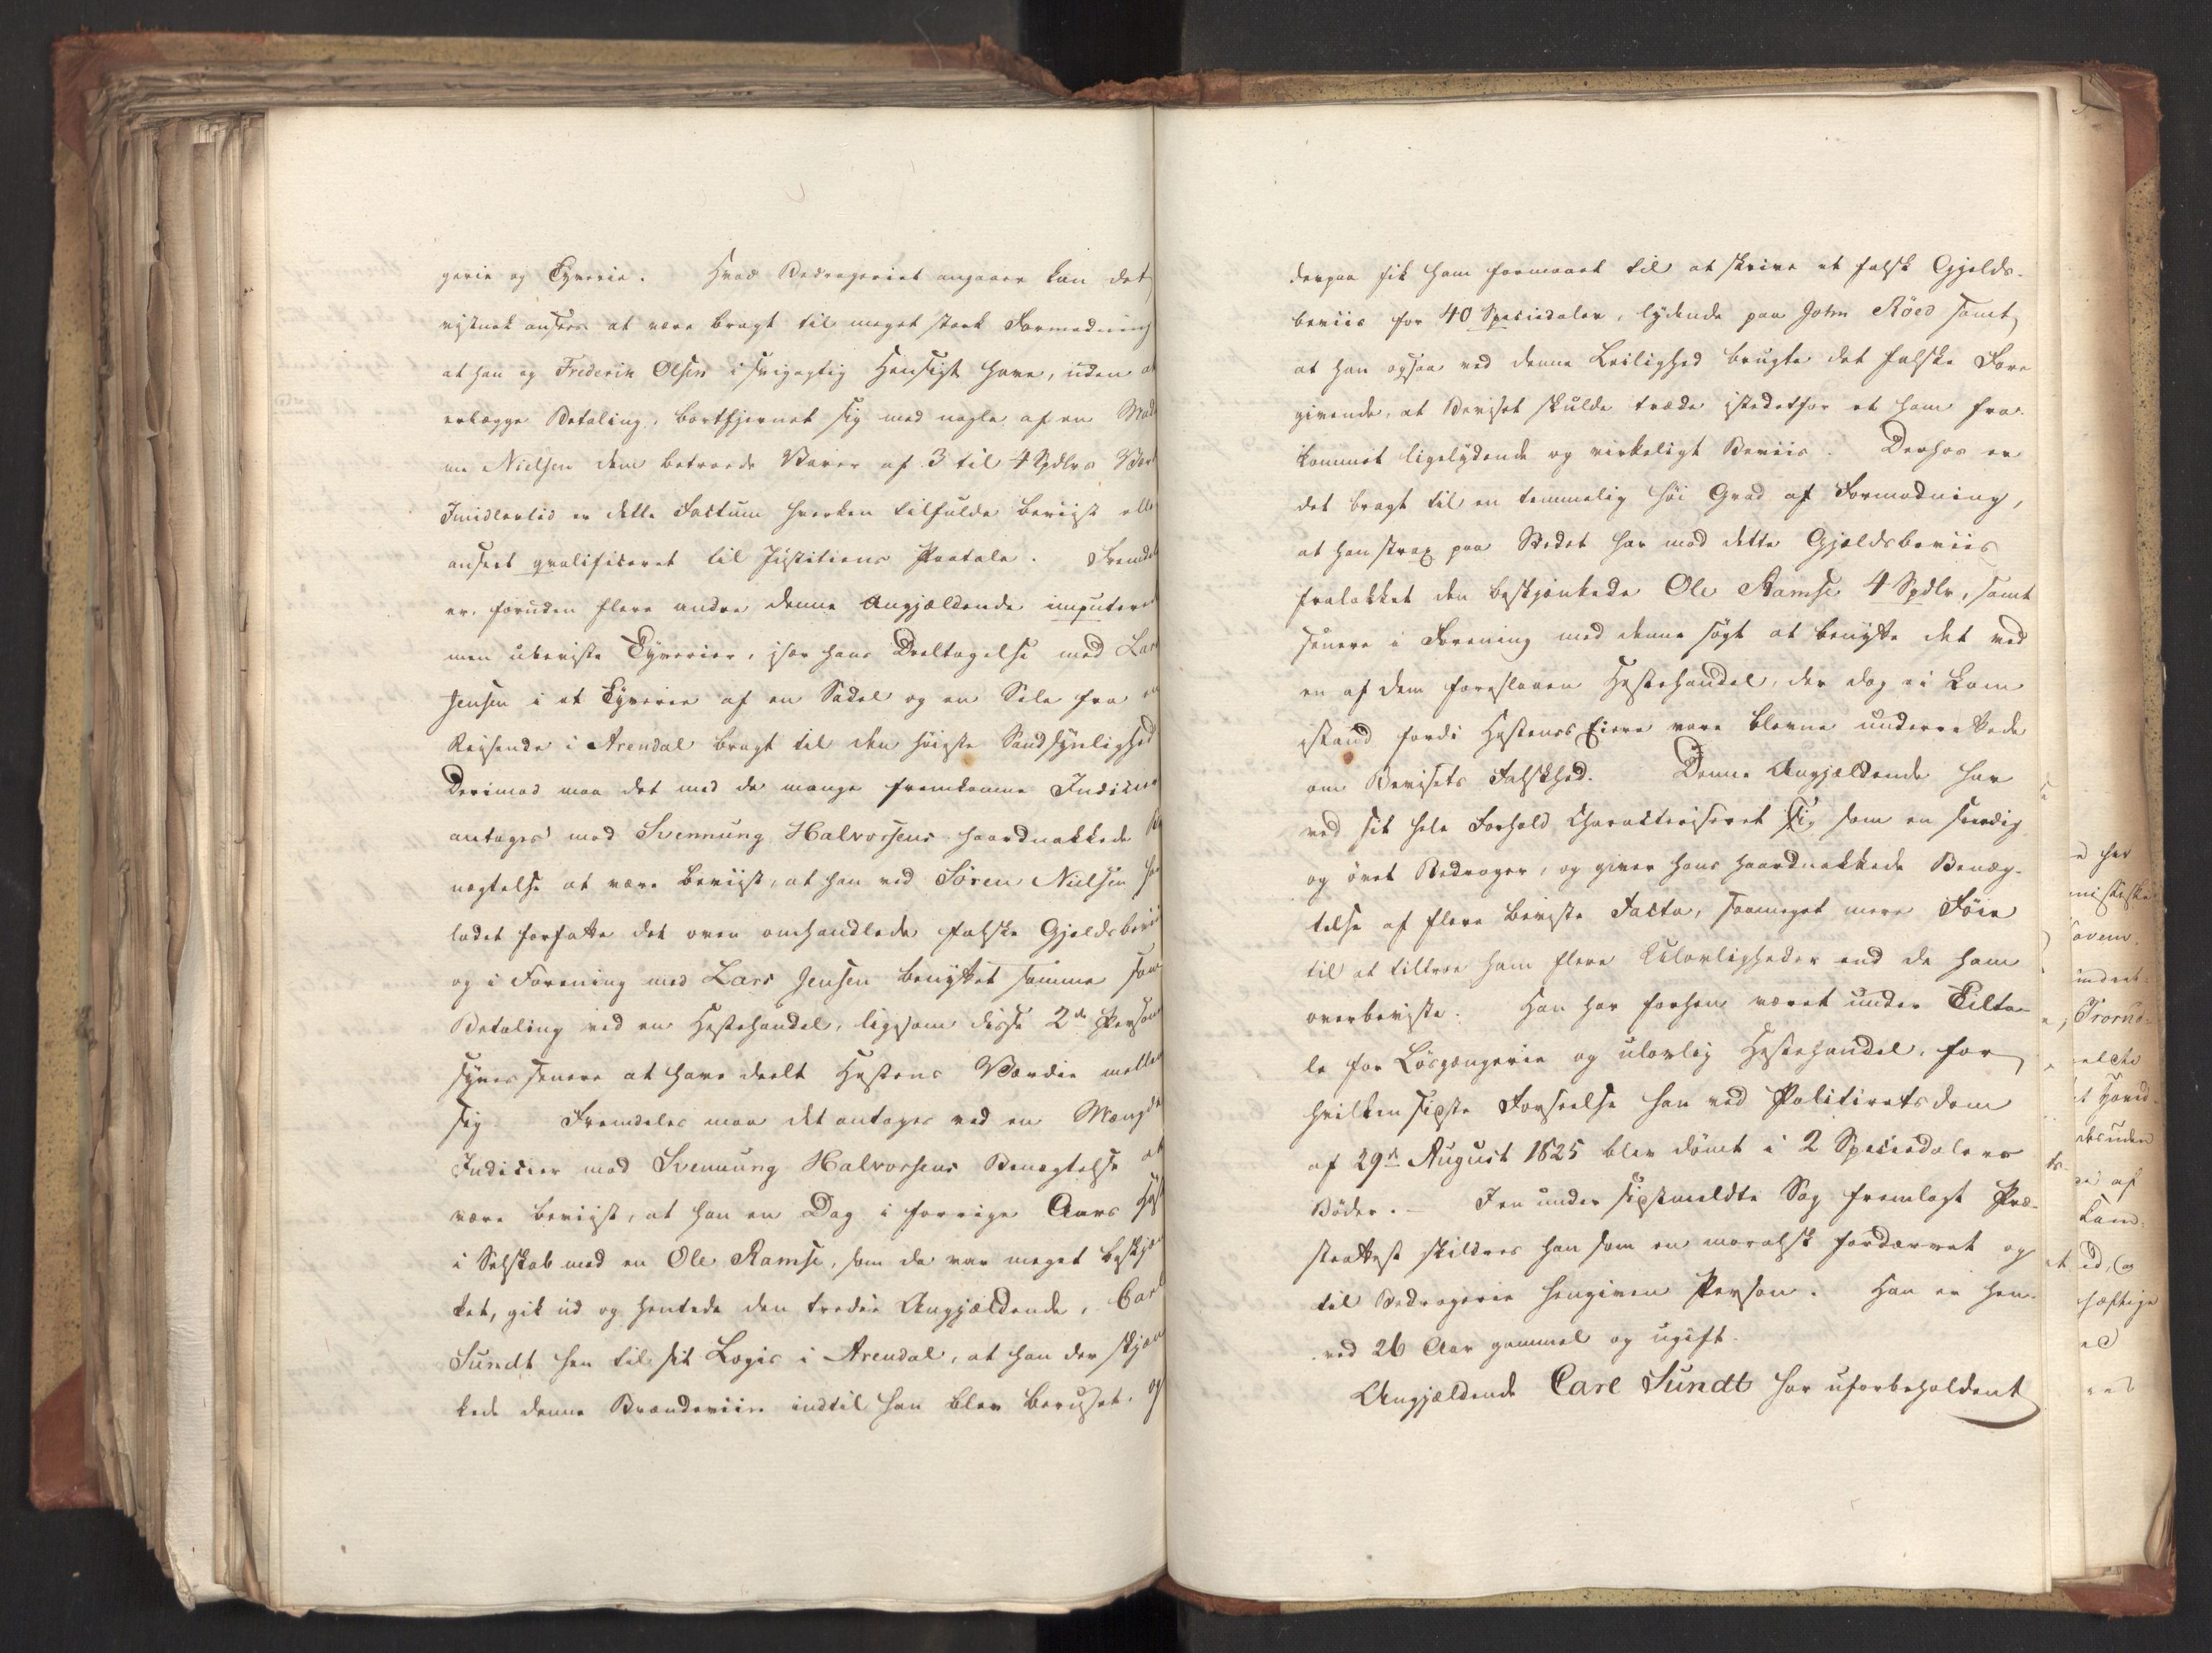 gerie og Tyverie. Hvad Bedrageriet angaaer kan det
vistnok ansees at være bragt til meget stærk Formodning
at han og Frederik Olsen i svigagtig Hensigt have, uden at
erlægge Betaling, bortfjernet sig med nogle af en Mada
me Nielsen dem betroede Varer af 3 til 4 Spdlrs Værd
Imidlertid er dette Factum hverken tilfulde beviist elle
anseet qvalificeret til Justitiens Paatale. Fremdel
er, foruden flere andre denne Angjældende imputered
men ubeviste Tyverier, især hans Deeltagelse med Lars
Jensen i et Tyverie af en Sadel og en Sele fra en
Reisende i Arendal bragt til den høieste Sandsynlighed
Derimod maa det med de mange fremkomne Indicier
antages mod Svennung Halvorsens haardnakkede Be
nægtelse at være beviist, at han ved Søren Nielsen har
ladet forfatte det oven omhandlede falske Gjeldsbevii
og i Forening med Lars Jensen benyttet samme som
Betaling ved en Hestehandel, ligesom disse 2de Person
synes senere at have deelt Hestens Værdie mellem
sig. Fremdeles maa det antages ved en Mængde
Indicier mod Svennung Halvorsens Benægtelse at
være beviist, at han en Dag i forrige Aars Høst
i Selskab med en Ole Ramse, som da var meget beskjæn
ket, gik ud og hentede den tredie Angjældende, Carl
Sundt hen til sit Logis i Arendal, at han der skjæn
kede denne Brændeviin indtil han blev beruset, og
derpaa fik ham formaaet til at skrive et falsk Gjelds-
beviis for 40 Speciedaler, lydende paa John Röed samt
at han ogsaa ved denne Leilighed brugte det falske Fore
givende, at Beviset skulde træde istedetfor et ham fra-
kommet ligelydende og virkeligt Beviis. Derhos er
det bragt til en temmelig høi Grad af Formodning,
at han strax paa Stedet har med dette Gjældsbeviis
fralokket den beskjænkede Ole Ramse 4 Spdlr, samt
senere i Forening med denne søgt at benytte det ved
en af dem foreslaaen Hestehandel, der dog ei kom
istand fordi Hestens Eiere vare blevne underrettede
om Bevisets Falskhed. Denne Angjældende har
ved sit hele Forhold charakteriseret sig som en snedig
og øvet Bedrager, og giver hans haardnakkede Benæg-
telse af flere beviste Facta, saameget mere Föie
til at tiltroe ham flere Ulovligheder end de ham
overbeviste. Han har forhen været under Tilta-
le for Løsgængerie og ulovlig Hestehandel, for
hvilken sidste Forseelse han ved Politiretsdom
af 29de August 1825 blev dømt i 2 Speciedalers
Bøder. I en under sidstmeldte Sag fremlagt Præ-
steattest skildres han som en moralsk fordærvet og
til Bedragerie hengiven Person. Han er hen-
ved 26 Aar gammel og ugift.
Angjældende Carl Sundt har uforbeholdent